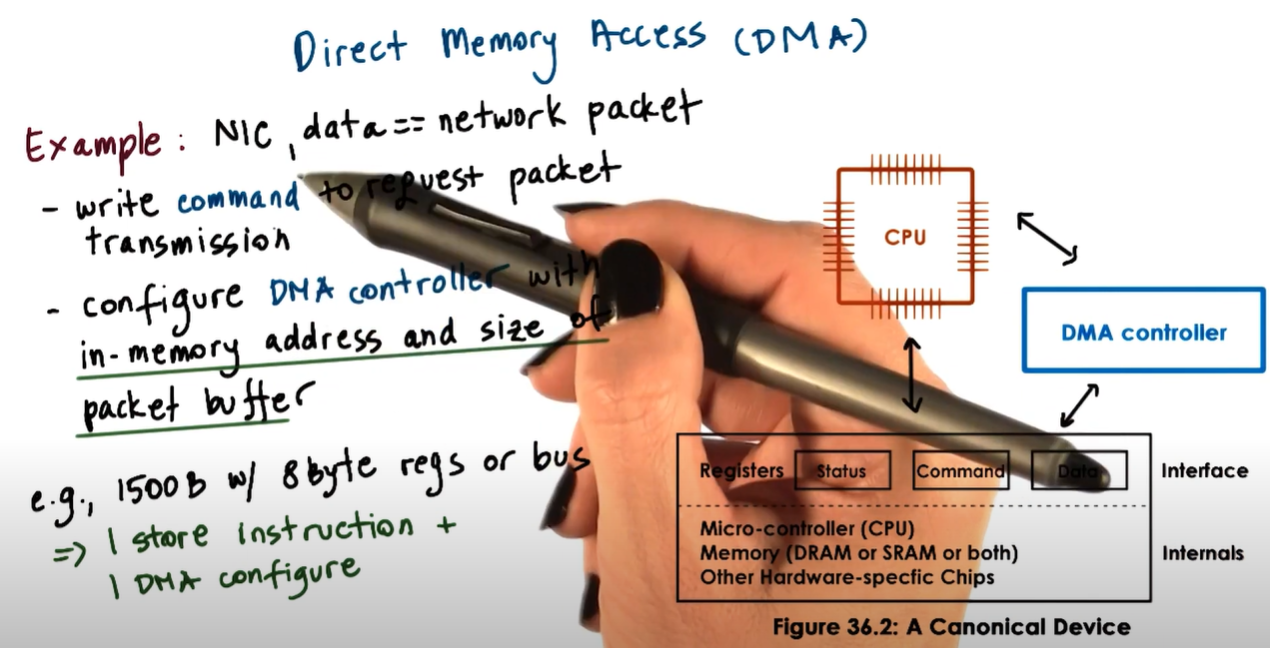 Direct Memory Access (DMA)
Example: NIC, data == network packet
- write command to request packet
transmission
- configure DMA controller with
in-memory address and size of
packet buffer
e.g., 1500B w/ 8 byte regs or bus
=> 1 store instruction +
1 DMA configure
CPU
DMA controller
Registers Status Command Data Interface
Micro-controller (CPU)
Memory (DRAM or SRAM or both) Internals
Other Hardware-specfic Chips
Figure 36.2: A Canonical Device